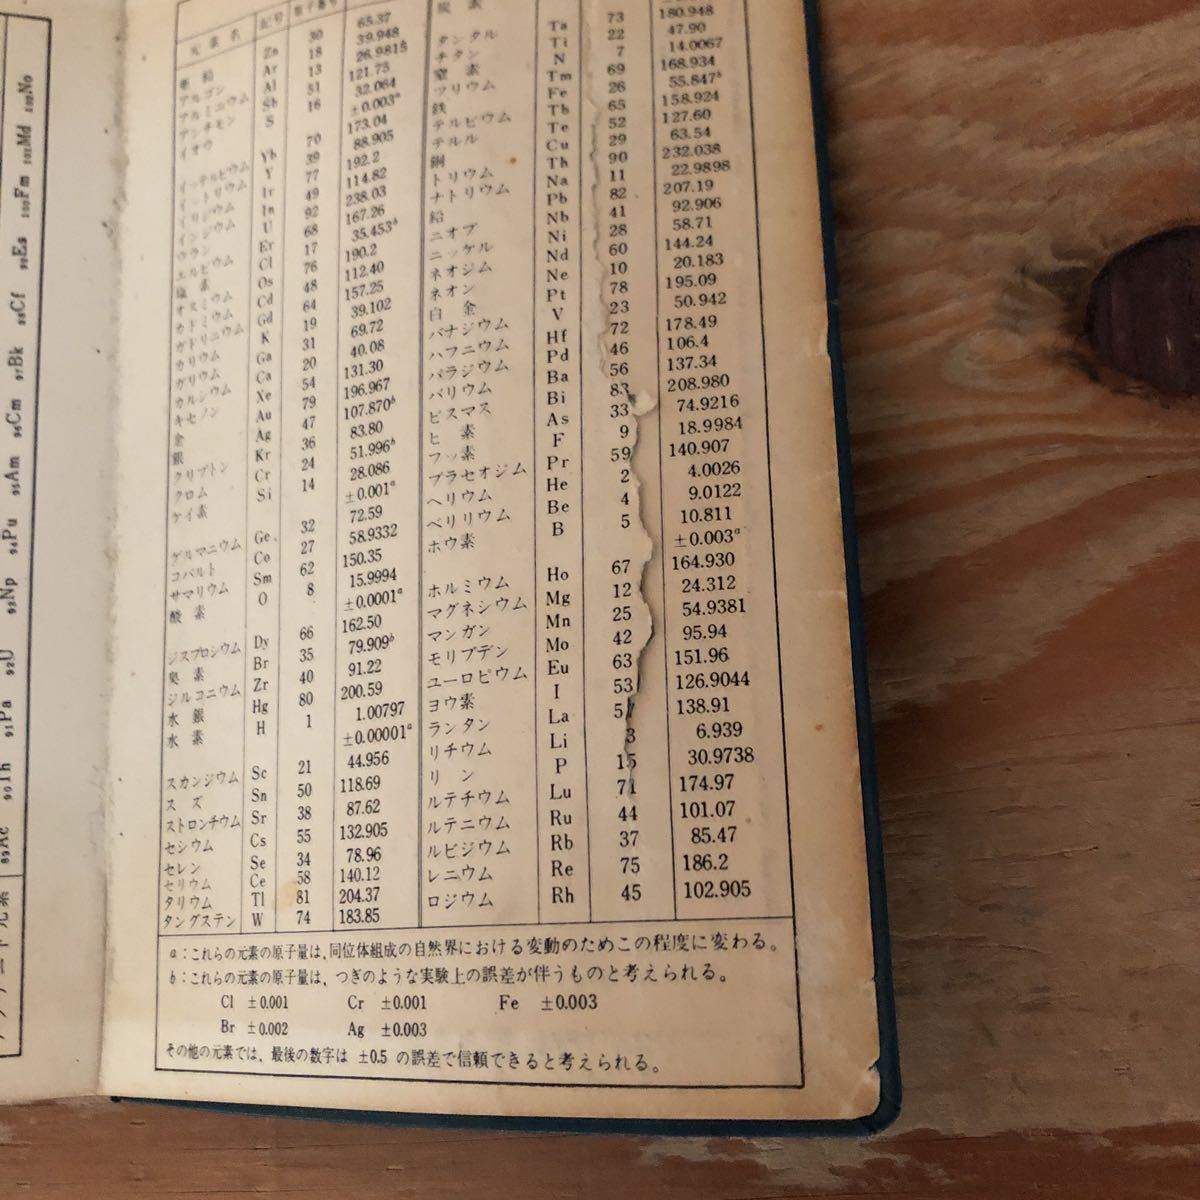 元素名 記号 原子番号
亜鉛 Zn 30 65.37
アルゴン Ar 18 39.948
アルミニウム Al 13 26.9815
アンチモン Sb 51 121.75
イオウ S 16 32.064
±0.003a
イッテルビウム Yb 70 173.04
イットリウム Y 39 88.905
イリジウム Ir 77 192.2
インジウム In 49 114.82
ウラン U 92 238.03
エルビウム Er 68 167.26
塩素 Cl 17 35.453b
オスミウム Os 76 190.2
カドミウム Cd 48 112.40
ガドリニウム Gd 64 157.25
カリウム K 19 39.102
ガリウム Ga 31 69.72
カルシウム Ca 20 40.08
キセノン Xe 54 131.30
金 Au 79 196.967
銀 Ag 47 107.870b
クリプトン Kr 36 83.80
クロム Cr 24 51.996b
ケイ素 Si 14 28.086
±0.001a
ゲルマニウム Ge 32 72.59
コバルト Co 27 58.9332
サマリウム Sm 62 150.35
酸素 O 8 15.9994
±0.0001a
ジスプロシウム Dy 66 162.50
臭素 Br 35 79.909b
ジルコニウム Zr 40 91.22
水銀 Hg 80 200.59
水素 H 1 1.00797
±0.00001a
スカンジウム Sc 21 44.956
スズ Sn 50 118.69
ストロンチウム Sr 38 87.62
セシウム Cs 55 132.905
セレン Se 34 78.96
セリウム Ce 58 140.12
タリウム Tl 81 204.37
タングステン W 74 183.85
炭素
タンタル Ta 73 180.948
チタン Ti 22 47.90
窒素 N 7 14.0067
ツリウム Tm 69 168.934
鉄 Fe 26 55.847b
テルビウム Tb 65 158.924
テルル Te 52 127.60
銅 Cu 29 63.54
トリウム Th 90 232.038
ナトリウム Na 11 22.9898
鉛 Pb 82 207.19
ニオブ Nb 41 92.906
ニッケル Ni 28 58.71
ネオジム Nd 60 144.24
ネオン Ne 10 20.183
白金 Pt 78 195.09
バナジウム V 23 50.942
ハフニウム Hf 72 178.49
パラジウム Pd 46 106.4
バリウム Ba 56 137.34
ビスマス Bi 83 208.980
ヒ素 As 33 74.9216
フッ素 F 9 18.9984
プラセオジム Pr 59 140.907
ヘリウム He 2 4.0026
ベリリウム Be 4 9.0122
ホウ素 B 5 10.811
±0.003a
ホルミウム Ho 67 164.930
マグネシウム Mg 12 24.312
マンガン Mn 25 54.9381
モリブデン Mo 42 95.94
ユーロピウム Eu 63 151.96
ヨウ素 I 53 126.9044
ランタン La 57 138.91
リチウム Li 3 6.939
リン P 15 30.9738
ルテチウム Lu 71 174.97
ルテニウム Ru 44 101.07
ルビジウム Rb 37 85.47
レニウム Re 75 186.2
ロジウム Rh 45 102.905
a:これらの元素の原子量は、同位体組成の自然界における変動のためこの程度に変わる。
b:これらの元素の原子量は、つぎのような実験上の誤差が伴うものと考えられる。
Cl ±0.001 Cr ±0.001 Fe ±0.003
Br ±0.002 Ag ±0.003
その他の元素では、最後の数字は ±0.5 の誤差で信頼できると考えられる。
89Ac 90Th 91Pa 92U 93Np 94Pu 95Am 96Cm 97Bk 98Cf 99Es 100Fm 101Md 102No